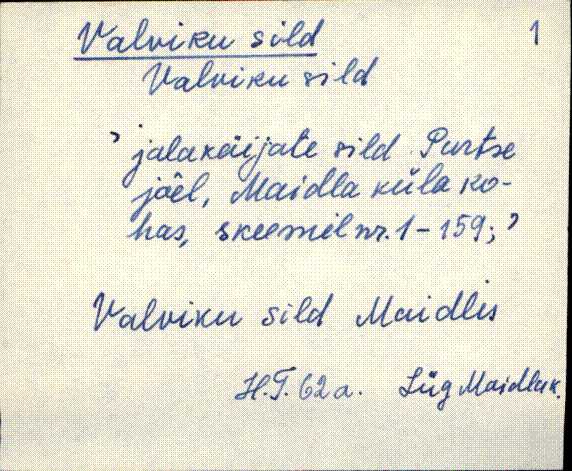 Valviku sild 1
Valviku sild
’ jalakäijate sild Purtse
jõel, Maidla küla ko-
has, skeemil nr. 1-159; ’
Valviku sild Maidlis
H.T. 62a. Lüg Maidla k.